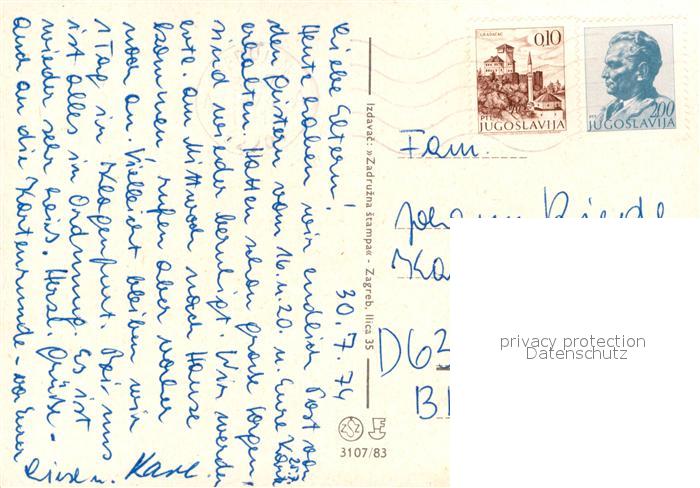 30.7.74
Liebe Eltern!
Heute haben wir endlich Post von
den Gustern vom 16. u. 20. u. Eure Karte
25.7.
erhalten. Hatten schon große Sorgen,
sind wieder beruhigt. Wir werden
evtl. am Mittwoch nach Hause
kommen rufen aber vorher
noch an. Vielleicht bleiben wir
1 Tag in Klagenfurt. Bei uns
ist alles in Ordnung. Es ist
wieder sehr heiß. Herzl. Grüße -
auch an die Kartenrunde - von Eurer
Liesel u. Karl
Izdavač: »Zadružna štampa« - Zagreb, Ilica 35
3107/83
GRADAČAC
0,10
PTT
JUGOSLAVIJA
PTT
2,00
JUGOSLAVIJA
Fam.
Johann
Ka
D62
B
privacy protection
Datenschutz